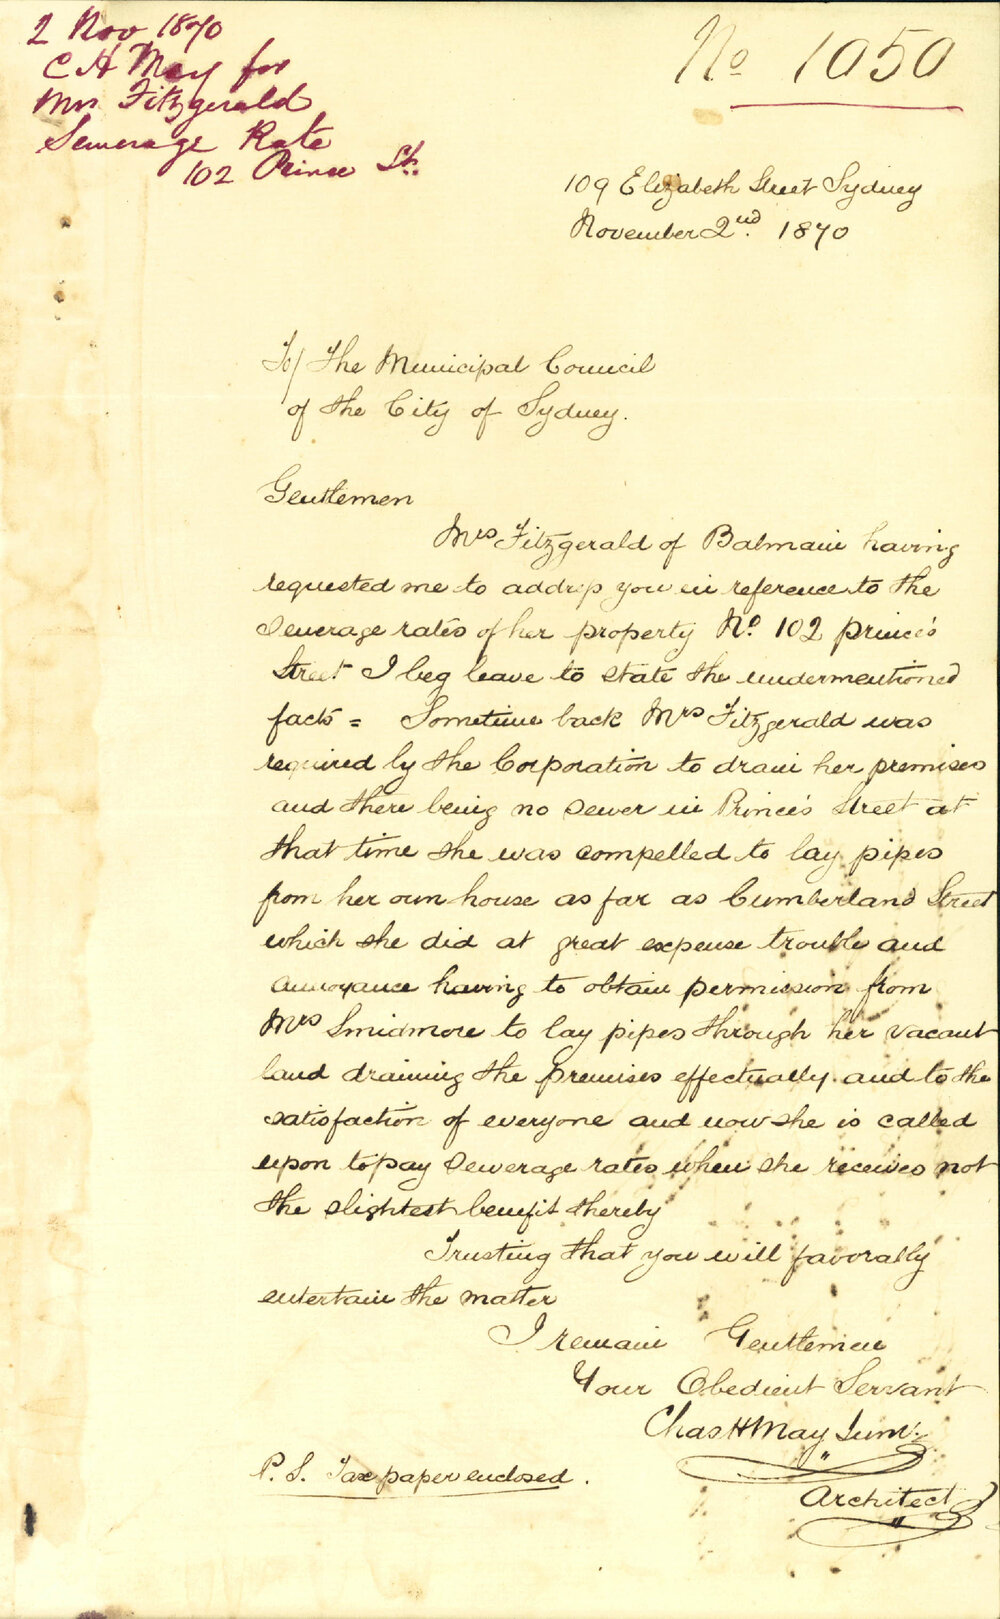 2 Nov 1870
C H May for
Mrs Fitzgerald
Sewerage Rate
102 Prince St.
No 1050
109 Elizabeth Street Sydney
November 2nd. 1870
To/ The Municipal Council
of the City of Sydney.
Gentlemen
Mrs Fitzgerald of Balmain having
requested me to address you in reference to the
Sewerage rates of her property No. 102 Prince's
Street I beg leave to state the undermentioned
facts = Sometime back Mrs Fitzgerald was
required by the Corporation to drain her premises
and there being no sewer in Prince's Street at
that time she was compelled to lay pipes
from her own house as far as Cumberland Street
which she did at great expense trouble and
annoyance having to obtain permission from
Mrs Smidmore to lay pipes through her vacant
land draining the premises effectually and to the
satisfaction of everyone and now she is called
upon to pay Sewerage rates when she receives not
the slightest benefit thereby
Trusting that you will favorably
entertain the matter
I remain Gentlemen
Your Obedient Servant
Chas H May Junr.
Architect
P.S. Tax paper enclosed.